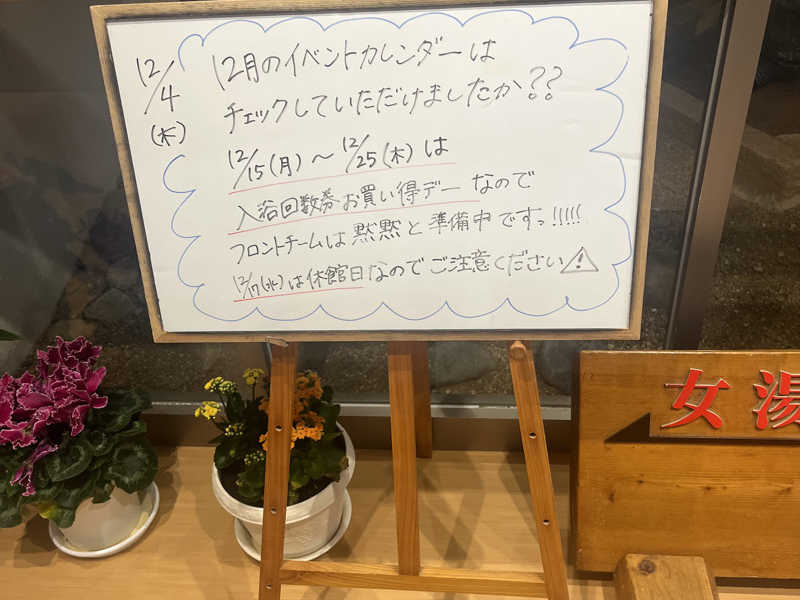 12/4
(木)
12月のイベントカレンダーは
チェックしていただけましたか??
12/15(月)~12/25(木)は
入浴回数券お買い得デーなので
フロントチームは黙黙と準備中ですっ!!!!!
12/17(水)は休館日なのでご注意ください⚠
女湯